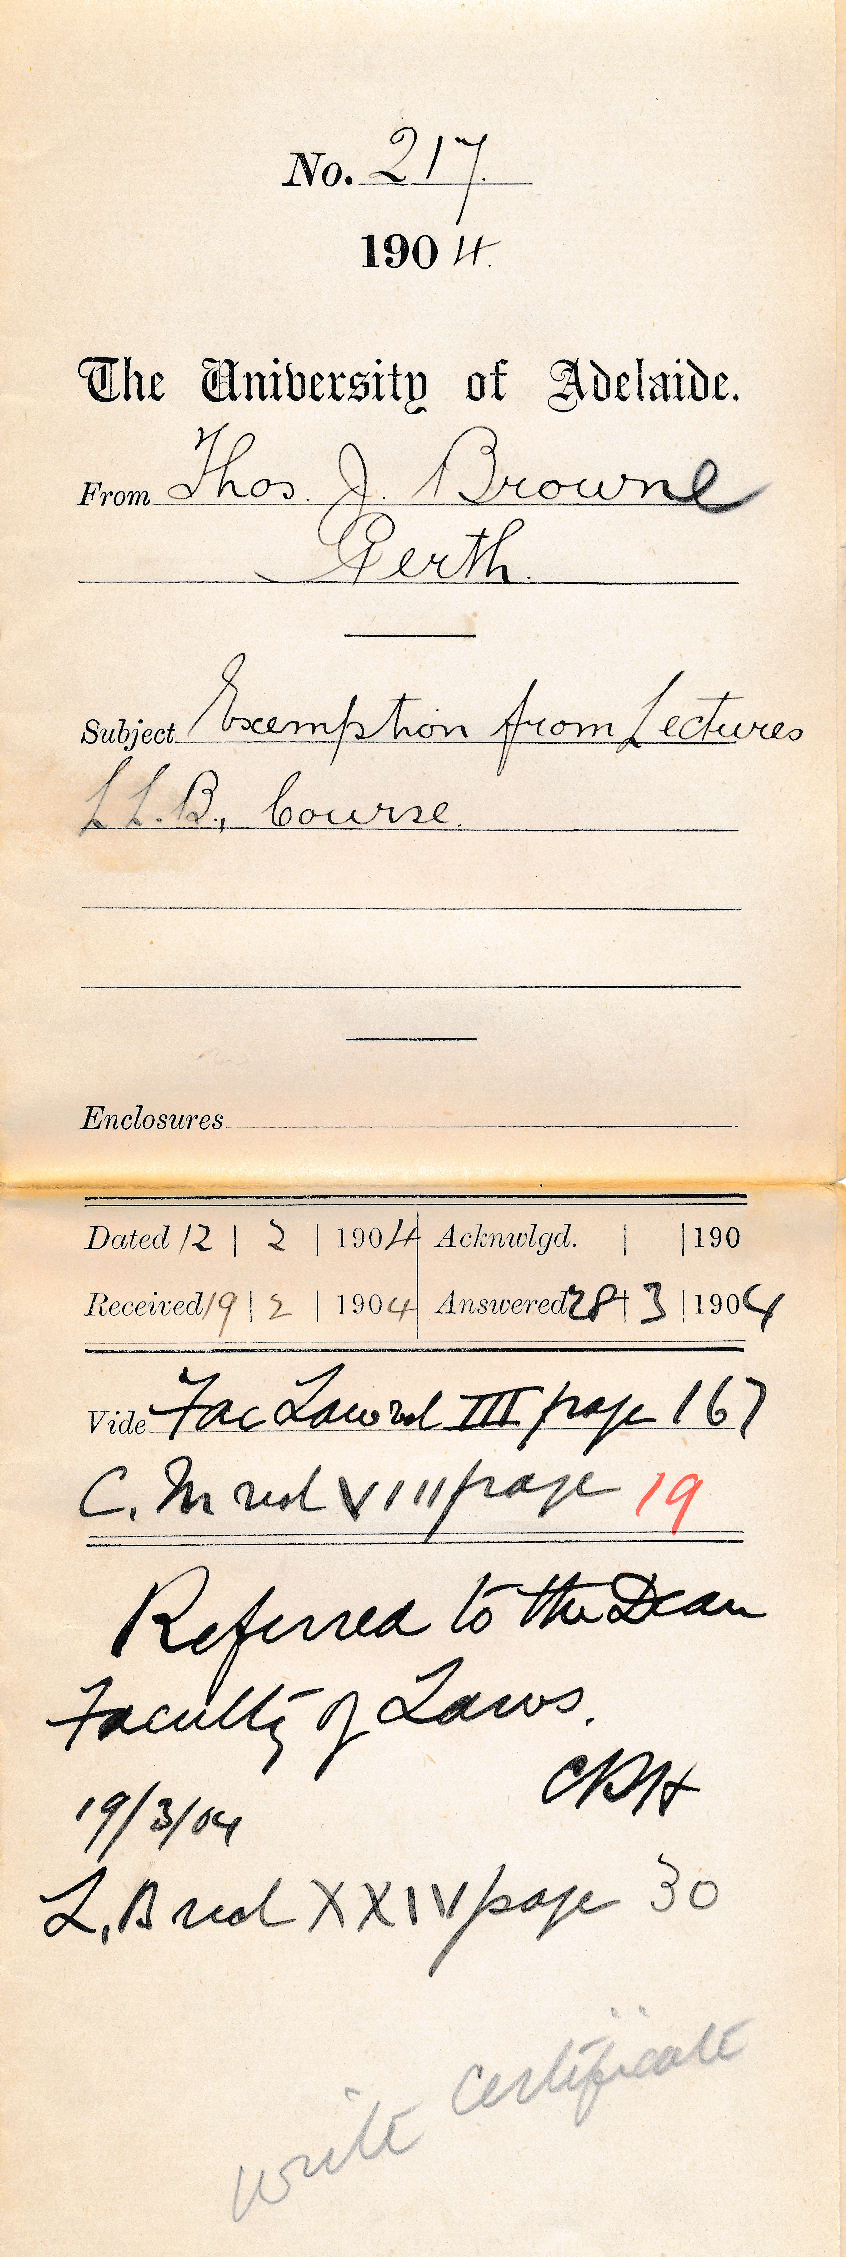 No. 217.
1904.
The University of Adelaide.
From Thos. J. Browne
Perth.
Subject Exemption from Lectures
LL.B., Course.
Enclosures
Dated 12 | 2 | 1904 Acknwlgd. | | 190
Received 19 | 2 | 1904 Answered 28 | 3 | 1904
Vide Fac Law vol III page 167
C. M vol VIII page 19
Referred to the Dean
Faculty of Laws.
CRH
19/3/04
L, B vol XXIV page 30
write certificate